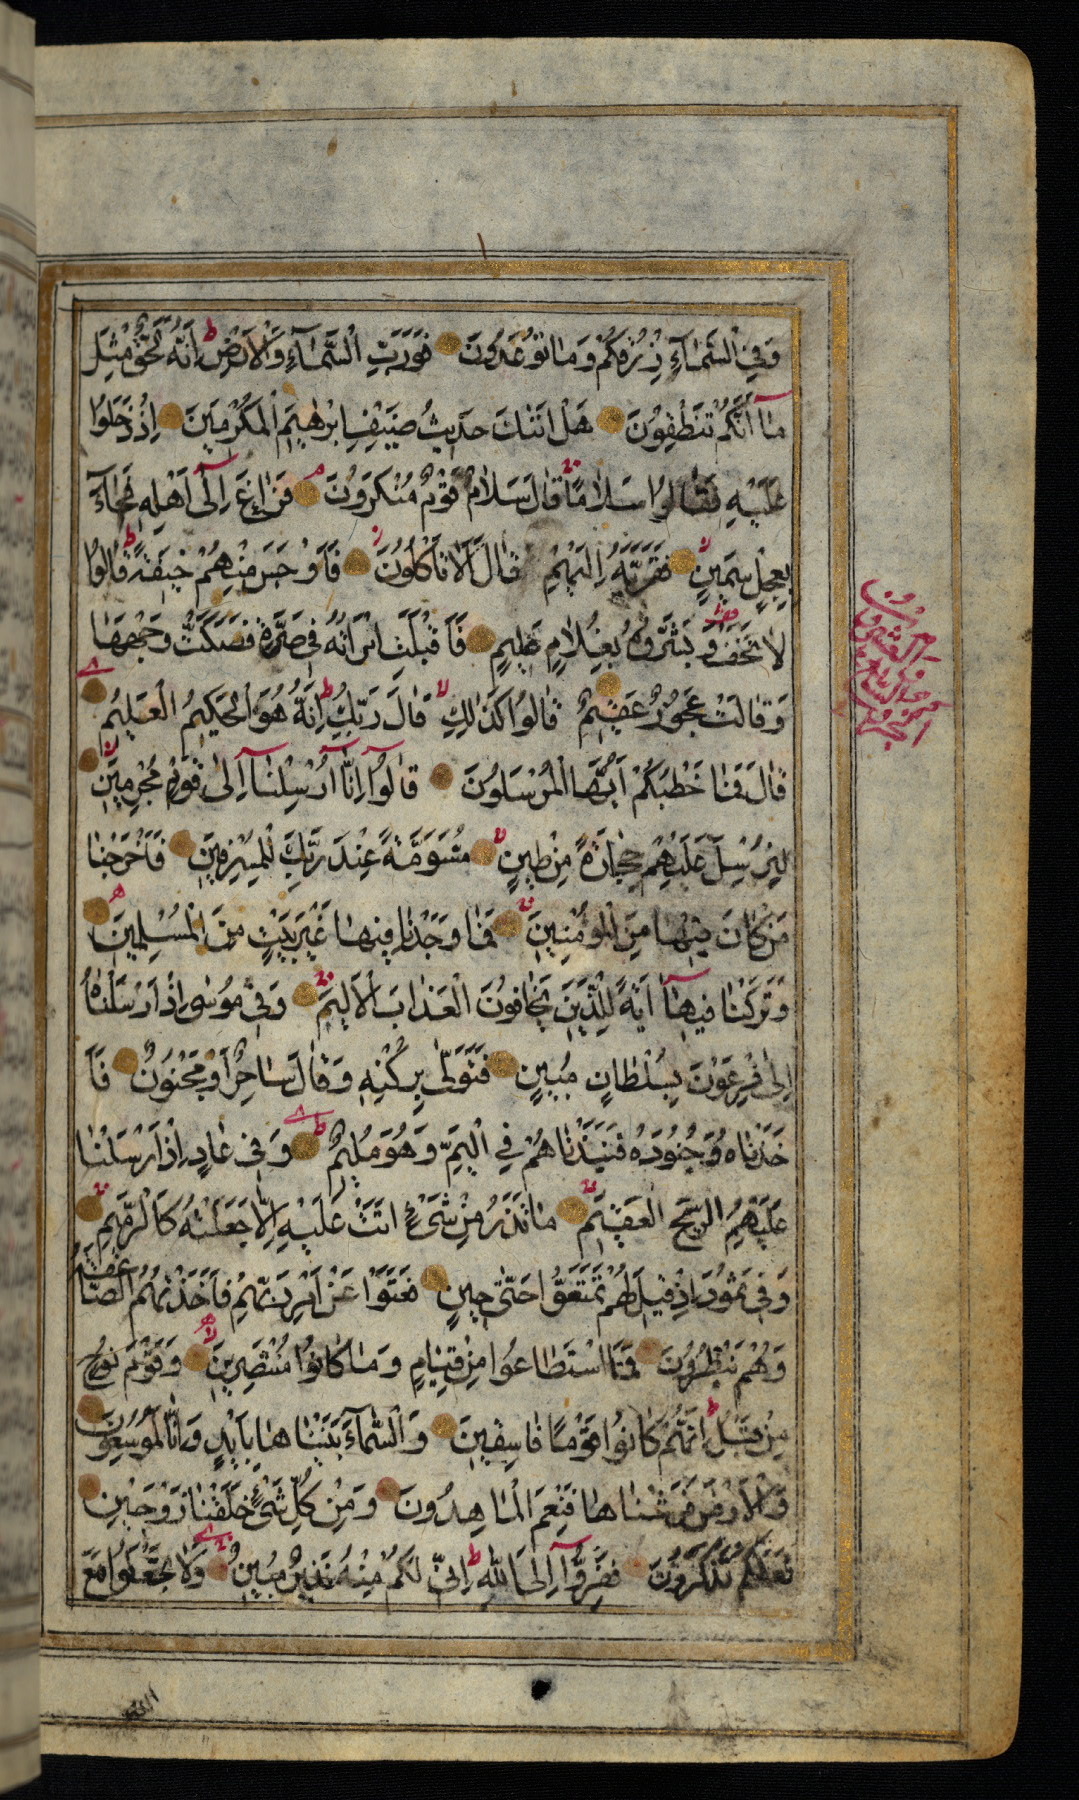 وَفِي السَّمَاءِ رِزْقُكُمْ وَمَا تُوعَدُونَ فَوَرَبِّ السَّمَاءِ وَالْأَرْضِ إِنَّهُ لَحَقٌّ مِثْلَ
مَا أَنَّكُمْ تَنْطِقُونَ هَلْ أَتٰكَ حَدِيثُ ضَيْفِ إِبْرٰهِيمَ الْمُكْرَمِينَ إِذْ دَخَلُوا
عَلَيْهِ فَقَالُوا سَلَامًا قَالَ سَلَامٌ قَوْمٌ مُنْكَرُونَ فَرَاغَ إِلَى أَهْلِهِ فَجَاءَ
بِعِجْلٍ سَمِينٍ فَقَرَّبَهُ إِلَيْهِمْ قَالَ أَلَا تَأْكُلُونَ فَأَوْجَسَ مِنْهُمْ خِيفَةً قَالُوا
لَا تَخَفْ وَبَشَّرُوهُ بِغُلَامٍ عَلِيمٍ فَأَقْبَلَتِ امْرَأَتُهُ فِي صَرَّةٍ فَصَكَّتْ وَجْهَهَا
وَقَالَتْ عَجُوزٌ عَقِيمٌ قَالُوا كَذٰلِكِ قَالَ رَبُّكِ إِنَّهُ هُوَ الْحَكِيمُ الْعَلِيمُ
قَالَ فَمَا خَطْبُكُمْ أَيُّهَا الْمُرْسَلُونَ قَالُوا إِنَّا أُرْسِلْنَا إِلَى قَوْمٍ مُجْرِمِينَ
لِنُرْسِلَ عَلَيْهِمْ حِجَارَةً مِنْ طِينٍ مُسَوَّمَةً عِنْدَ رَبِّكَ لِلْمُسْرِفِينَ فَأَخْرَجْنَا
مَنْ كَانَ فِيهَا مِنَ الْمُؤْمِنِينَ فَمَا وَجَدْنَا فِيهَا غَيْرَ بَيْتٍ مِنَ الْمُسْلِمِينَ
وَتَرَكْنَا فِيهَا آيَةً لِلَّذِينَ يَخَافُونَ الْعَذَابَ الْأَلِيمَ وَفِي مُوسَى إِذْ أَرْسَلْنَاهُ
إِلَى فِرْعَوْنَ بِسُلْطَانٍ مُبِينٍ فَتَوَلَّى بِرُكْنِهِ وَقَالَ سَاحِرٌ أَوْ مَجْنُونٌ فَأَ
خَذْنَاهُ وَجُنُودَهُ فَنَبَذْنَاهُمْ فِي الْيَمِّ وَهُوَ مُلِيمٌ وَفِي عَادٍ إِذْ أَرْسَلْنَا
عَلَيْهِمُ الرِّيحَ الْعَقِيمَ مَا تَذَرُ مِنْ شَيْءٍ أَتَتْ عَلَيْهِ إِلَّا جَعَلَتْهُ كَالرَّمِيمِ
وَفِي ثَمُودَ إِذْ قِيلَ لَهُمْ تَمَتَّعُوا حَتَّى حِينٍ فَعَتَوْا عَنْ أَمْرِ رَبِّهِمْ فَأَخَذَتْهُمُ الصَّاعِقَةُ
وَهُمْ يَنْظُرُونَ فَمَا اسْتَطَاعُوا مِنْ قِيَامٍ وَمَا كَانُوا مُنْتَصِرِينَ وَقَوْمَ نُوحٍ
مِنْ قَبْلُ إِنَّهُمْ كَانُوا قَوْمًا فَاسِقِينَ وَالسَّمَاءَ بَنَيْنَاهَا بِأَيْدٍ وَإِنَّا لَمُوسِعُونَ
وَالْأَرْضَ فَرَشْنَاهَا فَنِعْمَ الْمَاهِدُونَ وَمِنْ كُلِّ شَيْءٍ خَلَقْنَا زَوْجَيْنِ
لَعَلَّكُمْ تَذَكَّرُونَ فَفِرُّوا إِلَى اللّٰهِ إِنِّي لَكُمْ مِنْهُ نَذِيرٌ مُبِينٌ وَلَا تَجْعَلُوا مَعَ